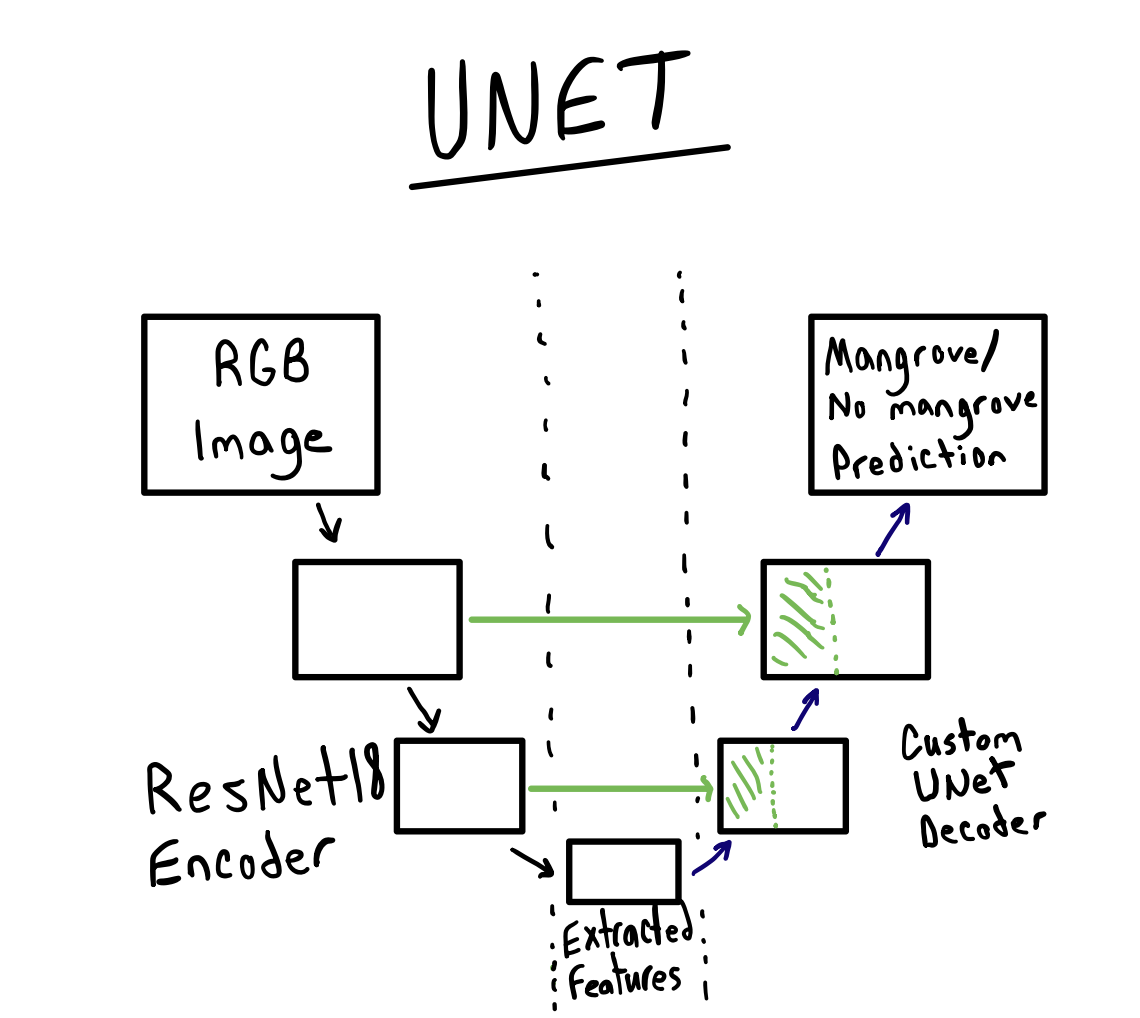 UNET
RGB
Image
Mangrove/
No mangrove
Prediction
ResNet18
Encoder
Custom
UNet
Decoder
Extracted
Features